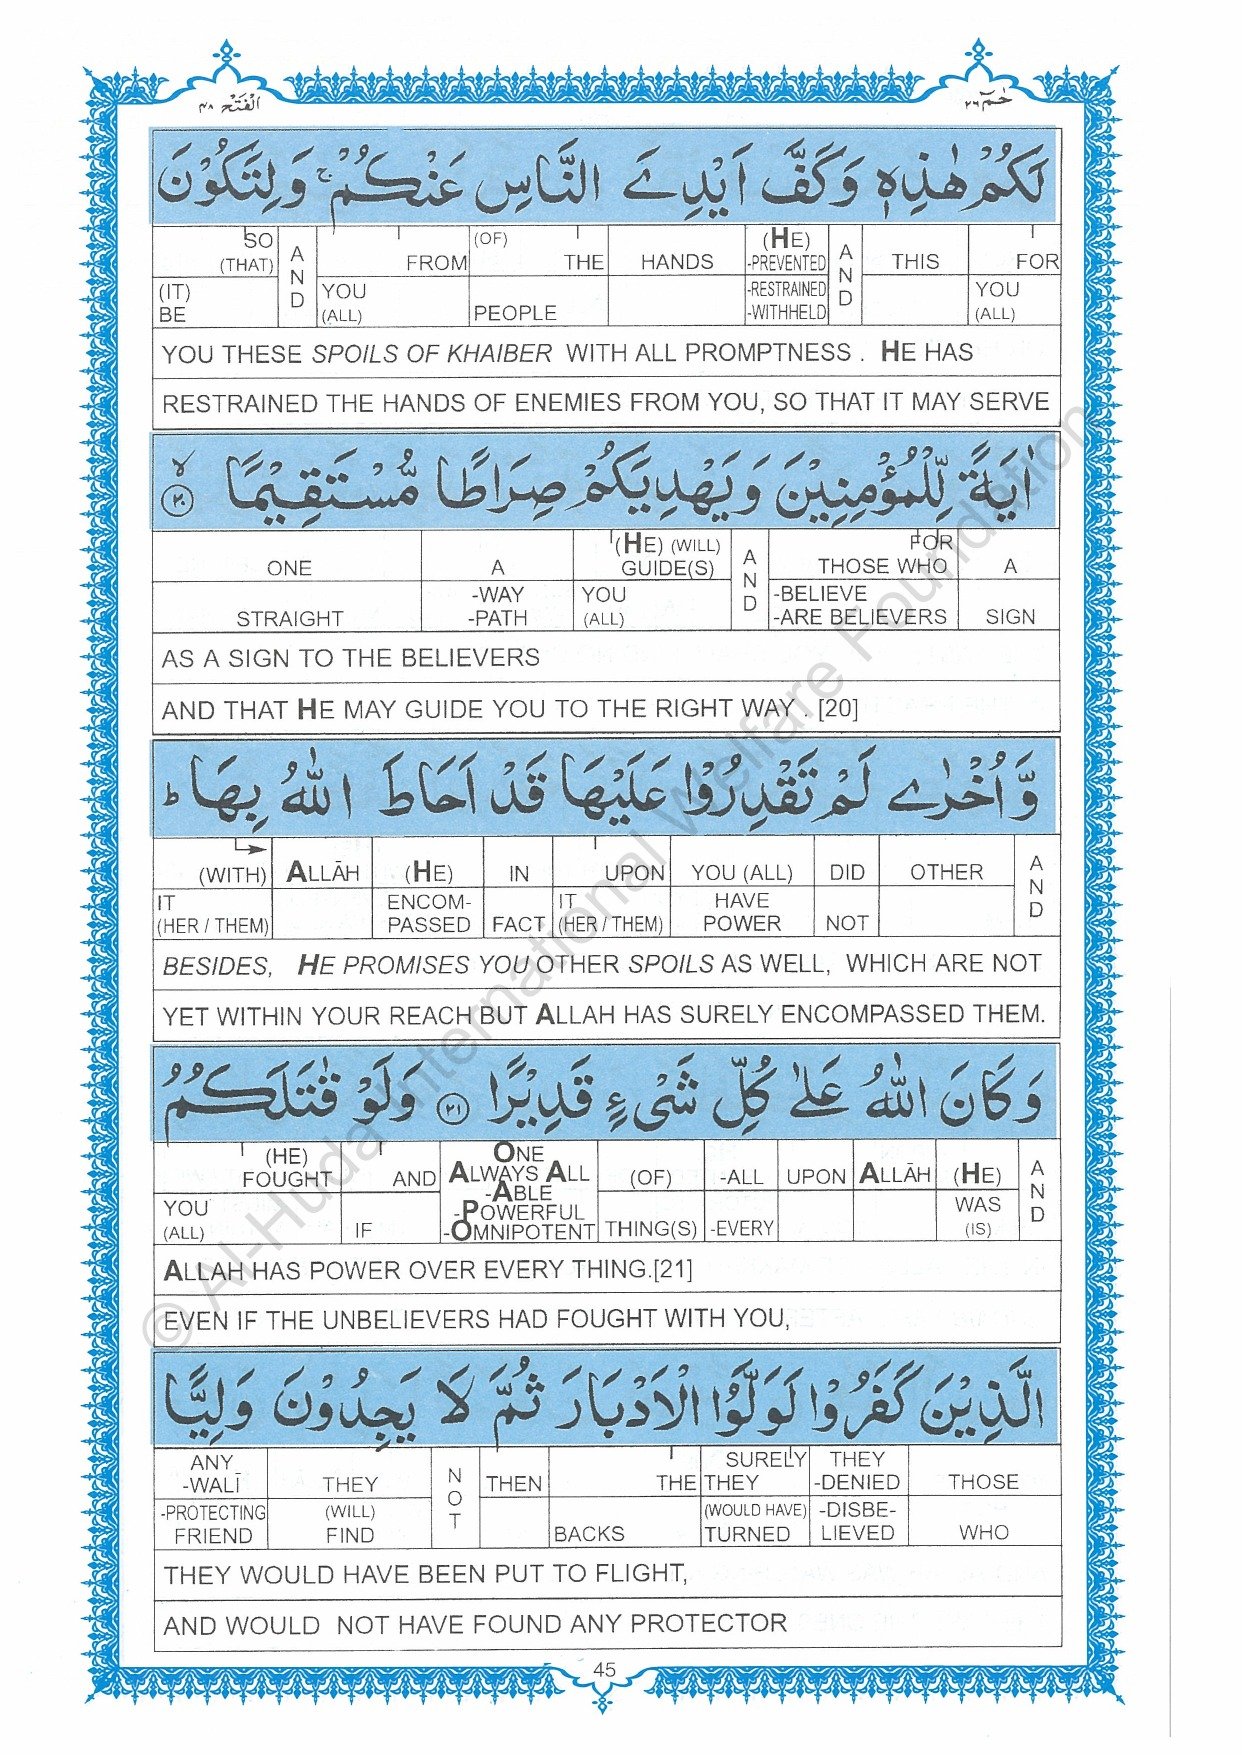 الْفَتْح ٤٨
حٰمٓ ٢٦
لَكُمْ هٰذِهٖ وَكَفَّ اَيْدِيَ النَّاسِ عَنْكُمْ ۚ وَلِتَكُوْنَ
SO (THAT) (IT) BE | AND | FROM YOU (ALL) | (OF) THE PEOPLE | HANDS | (HE) -PREVENTED -RESTRAINED -WITHHELD | AND | THIS | FOR YOU (ALL)
YOU THESE SPOILS OF KHAIBER WITH ALL PROMPTNESS . HE HAS
RESTRAINED THE HANDS OF ENEMIES FROM YOU, SO THAT IT MAY SERVE
اٰيَةً لِّلْمُؤْمِنِيْنَ وَيَهْدِيَكُمْ صِرَاطًا مُّسْتَقِيْمًا ۙ ٢٠
ONE STRAIGHT | A -WAY -PATH | (HE) (WILL) GUIDE(S) YOU (ALL) | AND | FOR THOSE WHO -BELIEVE -ARE BELIEVERS | A SIGN
AS A SIGN TO THE BELIEVERS
AND THAT HE MAY GUIDE YOU TO THE RIGHT WAY . [20]
وَّاُخْرٰى لَمْ تَقْدِرُوْا عَلَيْهَا قَدْ اَحَاطَ اللّٰهُ بِهَا ؕ
(WITH) IT (HER / THEM) | ALLĀH | (HE) ENCOM- PASSED | IN FACT | UPON IT (HER / THEM) | YOU (ALL) HAVE POWER | DID NOT | OTHER | AND
BESIDES, HE PROMISES YOU OTHER SPOILS AS WELL, WHICH ARE NOT
YET WITHIN YOUR REACH BUT ALLAH HAS SURELY ENCOMPASSED THEM.
وَكَانَ اللّٰهُ عَلٰى كُلِّ شَيْءٍ قَدِيْرًا ٢١ وَلَوْ قٰتَلَكُمُ
(HE) FOUGHT YOU (ALL) | AND IF | ONE ALWAYS ALL -ABLE -POWERFUL -OMNIPOTENT | (OF) THING(S) | -ALL -EVERY | UPON | ALLĀH | (HE) WAS (IS) | AND
ALLAH HAS POWER OVER EVERY THING.[21]
EVEN IF THE UNBELIEVERS HAD FOUGHT WITH YOU,
الَّذِيْنَ كَفَرُوْا لَوَلَّوُا الْاَدْبَارَ ثُمَّ لَا يَجِدُوْنَ وَلِيًّا
ANY -WALĪ -PROTECTING FRIEND | THEY (WILL) FIND | NOT | THEN | THE BACKS | SURELY THEY (WOULD HAVE) TURNED | THEY -DENIED -DISBE- LIEVED | THOSE WHO
THEY WOULD HAVE BEEN PUT TO FLIGHT,
AND WOULD NOT HAVE FOUND ANY PROTECTOR
45
© Al-Huda International Welfare Foundation